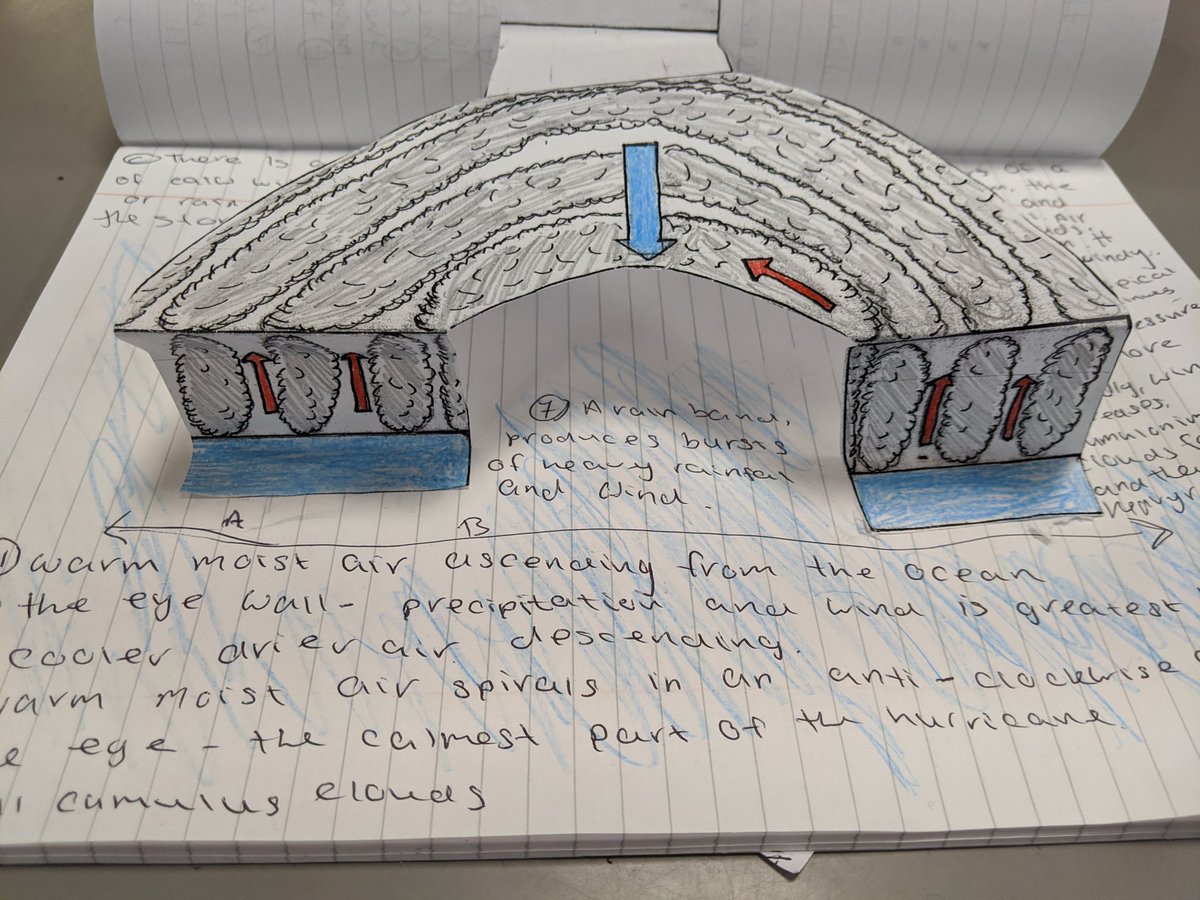 ⑥ There is a
of calm w
or rain
the sto
of a
the
and
Air
it
windy.
pical
essure
more
gly, win
eases.
umulonim
clouds fo
and the
heavy r
⑦ A rain band,
produces bursts
of heavy rainfall
and wind.
A
B
① warm moist air ascending from the ocean
the eye wall - precipitation and wind is greatest
cooler drier air descending.
warm moist air spirals in an anti-clockwise
e eye - the calmest part of the hurricane.
cumulus clouds